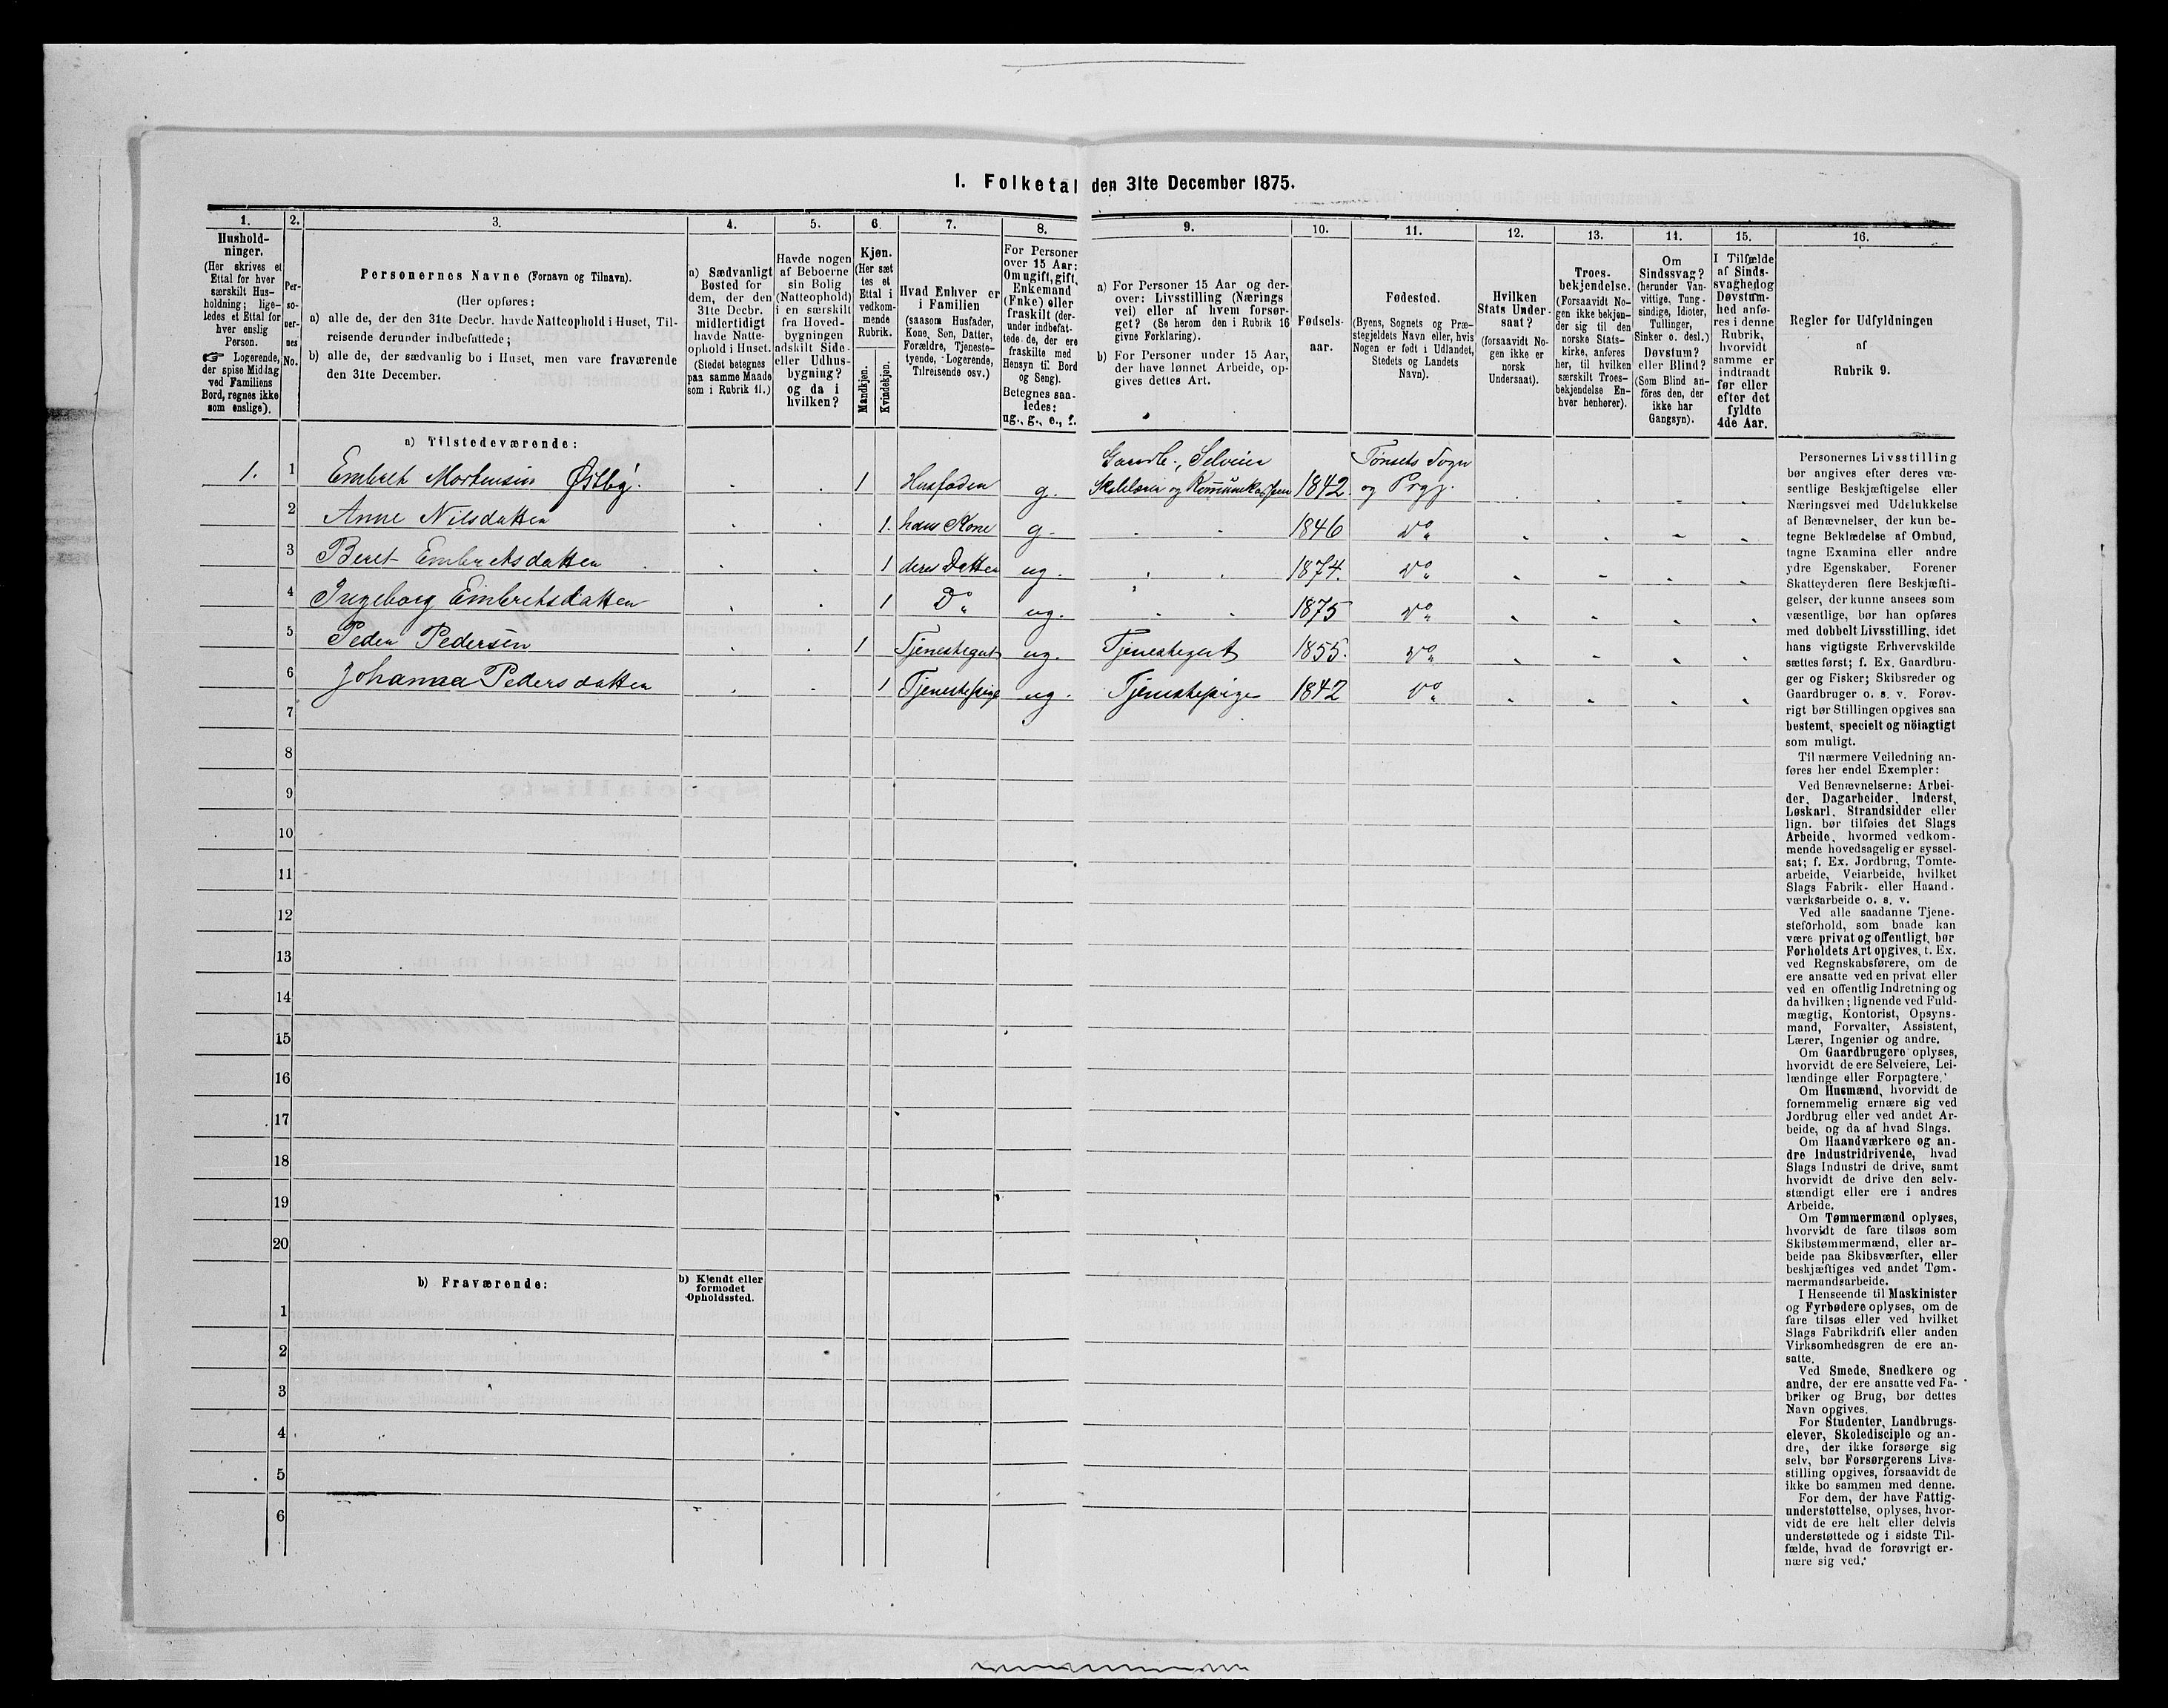 I. Folketal den 31te December 1875.
1. 2. 3. 4. 5. 6. 7. 8. 9. 10. 11. 12. 13. 14. 15. 16.
Hushold-
ninger.
(Her skrives et
Ettal for hver
særskilt Hus-
holdning; lige-
ledes et Ettal for
hver enslig
Person.
☞ Logerende,
der spise Middag
ved Familiens
Bord, regnes ikke
som enslige).
Per-
so-
ner-
nes
No.
Personernes Navne (Fornavn og Tilnavn).
(Her opføres:
a) alle de, der den 31te Decbr. havde Natteophold i Huset, Til-
reisende derunder indbefattede;
b) alle de, der sædvanlig bo i Huset, men vare fraværende
den 31te December.
a) Sædvanligt
Bosted for
dem, der den
31te Decbr.
midlertidigt
havde Natte-
ophold i Huset.
(Stedet betegnes
paa samme Maade
som i Rubrik 11.)
Havde nogen
af Beboerne
sin Bolig
(Natteophold)
i en særskilt
fra Hoved-
bygningen
adskilt Side-
eller Udhus-
bygning?
og da i
hvilken?
Kjøn.
(Her sæt-
tes et
Ettal i
vedkom-
mende
Rubrik.
Mandkjøn.
Kvindekjøn.
Hvad Enhver er
i Familien
(saasom Husfader,
Kone, Søn, Datter,
Forældre, Tjeneste-
tyende, Logerende,
Tilreisende osv.)
For Personer
over 15 Aar:
Om ugift, gift,
Enkemand
(Enke) eller
fraskilt (der-
under indbefat-
tede de, der ere
fraskilte med
Hensyn til Bord
og Seng).
Betegnes saa-
ledes:
ug., g., e., f.
a) For Personer 15 Aar og der-
over: Livsstilling (Nærings
vei) eller af hvem forsør-
get? (Se herom den i Rubrik 16
givne Forklaring).
b) For Personer under 15 Aar,
der have lønnet Arbeide, op-
gives dettes Art.
Fødsels-
aar.
Fødested.
(Byens, Sognets og Præ-
stegjeldets Navn eller, hvis
Nogen er født i Udlandet,
Stedets og Landets
Navn).
Hvilken
Stats Under-
saat?
(forsaavidt No-
gen ikke er
norsk
Undersaat).
Troes-
bekjendelse.
(Forsaavidt No-
gen ikke bekjen-
der sig til den
norske Stats-
kirke, anføres
her, til hvilken
særskilt Troes-
bekjendelse En-
hver henhører).
Om
Sindssvag?
(herunder Van-
vittige, Tung-
sindige, Idioter,
Tullinger,
Sinker o. desl.)
Døvstum?
eller Blind?
(Som Blind an-
föres den, der
ikke har
Gangsyn).
I Tilfælde
af Sinds-
svaghed og
Døvstum-
hed anfø-
res i denne
Rubrik,
hvorvidt
samme er
indtraadt
før eller
efter det
fyldte
4de Aar.
Regler for Udfyldningen
af
Rubrik 9.
a) Tilstedeværende:
Gaardb., Selveier Tønsets Sogn
1. 1 Embret Mortensen Østby. 1 Husfader g. Skolelærer og Kommunekasserer 1842. og Prgj.
2 Anne Nilsdatter 1. hans Kone g. 1846 Do
3 Beret Embretsdatter 1 deres Datter ug. 1874. Do
4 Ingeborg Embretsdatter 1 Do ug. 1875 Do
5 Peder Pedersen 1 Tjenestegut ug. Tjenestegut 1855. Do
6 Johanna Pedersdatter 1 Tjenestepige ug. Tjenestepige 1842 Do
7
8
9
10
11
12
13
14
15
16
17
18
19
20
b) Fraværende:
b) Kjendt eller
formodet
Opholdssted.
1
2
3
4
5
6
Personernes Livsstilling
bør angives efter deres væ-
sentlige Beskjæftigelse eller
Næringsvei med Udelukkelse
af Benævnelser, der kun be-
tegne Beklædelse af Ombud,
tagne Examina eller andre
ydre Egenskaber. Forener
Skatteyderen flere Beskjæfti-
gelser, der kunne ansees som
væsentlige, bør han opføres
med dobbelt Livsstilling, idet
hans vigtigste Erhvervskilde
sættes først; f. Ex. Gaardbru-
ger og Fisker; Skibsreder og
Gaardbruger o. s. v. Forøv-
rigt bør Stillingen opgives saa
bestemt, specielt og nöiagtigt
som muligt.
Til nærmere Veiledning an-
føres her endel Exempler:
Ved Benævnelserne: Arbei-
der, Dagarbeider, Inderst,
Løskarl, Strandsidder eller
lign. bør tilføies det Slags
Arbeide, hvormed vedkom-
mende hovedsagelig er syssel-
sat; f. Ex. Jordbrug, Tomte-
arbeide, Veiarbeide, hvilket
Slags Fabrik- eller Haand-
værksarbeide o. s. v.
Ved alle saadanne Tjene-
steforhold, som baade kan
være privat og offentligt, bør
Forholdets Art opgives, t. Ex.
ved Regnskabsførere, om de
ere ansatte ved en privat eller
ved en offentlig Indretning og
da hvilken; lignende ved Fuld-
mægtig, Kontorist, Opsyns-
mand, Forvalter, Assistent,
Lærer, Ingeniør og andre.
Om Gaardbrugere oplyses,
hvorvidt de ere Selveiere, Lei-
lændinge eller Forpagtere.
Om Husmænd, hvorvidt de
fornemmelig ernære sig ved
Jordbrug eller ved andet Ar-
beide, og da af hvad Slags.
Om Haandværkere og an-
dre Industridrivende, hvad
Slags Industri de drive, samt
hvorvidt de drive den selv-
stændigt eller ere i andres
Arbeide.
Om Tømmermænd oplyses,
hvorvidt de fare tilsøs som
Skibstømmermænd, eller ar-
beide paa Skibsværfter, eller
beskjæftiges ved andet Tøm-
mermandsarbeide.
I Henseende til Maskinister
og Fyrbødere oplyses, om de
fare tilsøs eller ved hvilket
Slags Fabrikdrift eller anden
Virksomhedsgren de ere an-
satte.
Ved Smede, Snedkere og
andre, der ere ansatte ved Fa-
briker og Brug, bør dettes
Navn opgives.
For Studenter, Landbrugs-
elever, Skoledisciple og an-
dre, der ikke forsørge sig
selv, bør Forsørgerens Livs-
stilling opgives, forsaavidt de
ikke bo sammen med denne.
For dem, der have Fattig-
understøttelse, oplyses, hvor-
vidt de ere helt eller delvis
understøttede og i sidste Til-
fælde, hvad de forøvrigt er-
nære sig ved.